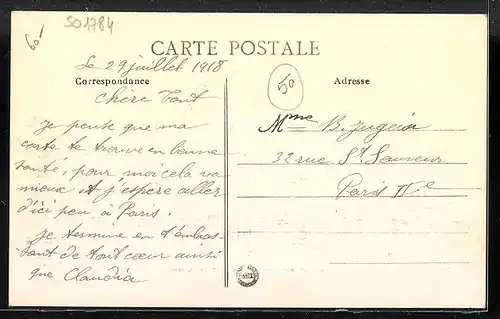 60!
SO1784
CARTE POSTALE
Le 29 juillet 1918
50
Correspondance
Adresse
Chère Tant
Je pense que ma
carte te trouve en bonne
santé, pour moi cela va
mieux et j'espère aller
d'ici peu à Paris.
Je termine en t'embras-
sant de tout cœur ainsi
que Claudia
Mme B. Jugein
32 rue St. Sauveur
Paris IIe